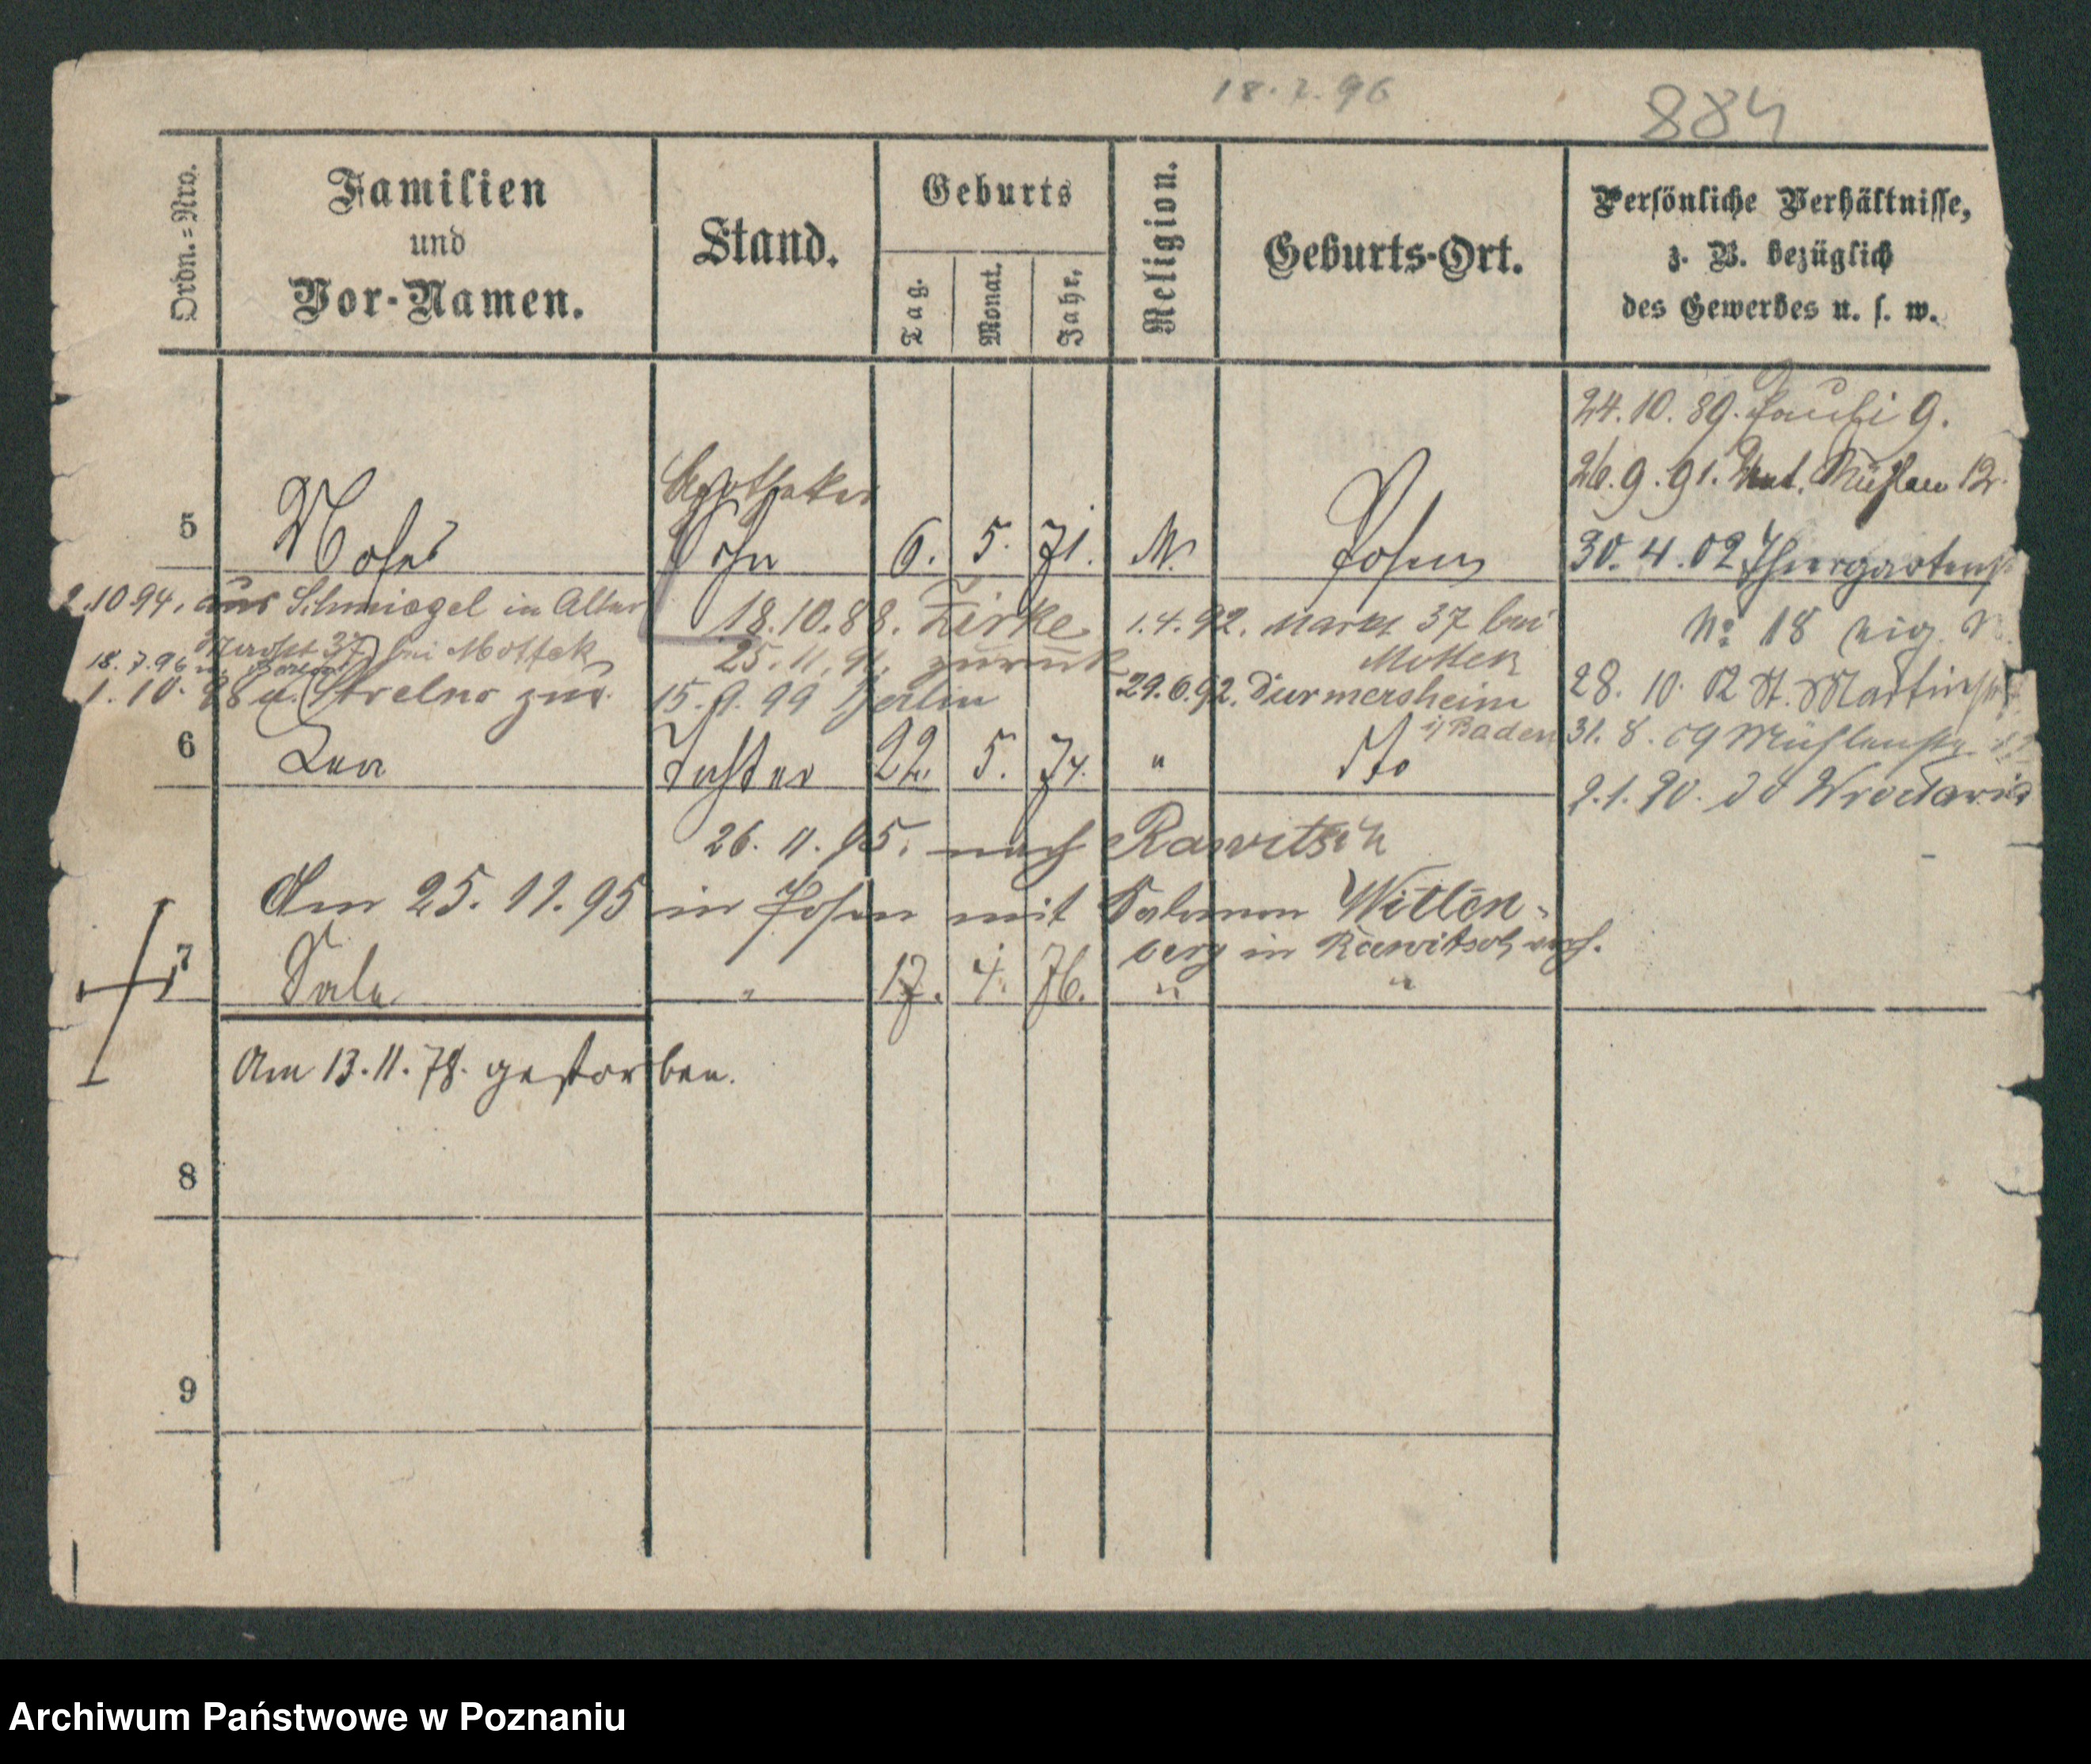 18.7.96
884
Ordn.=Nro.
Familien
und
Vor-Namen.
Stand.
Geburts
Tag.
Monat.
Jahr.
Religion.
Geburts-Ort.
Persönliche Verhältnisse,
z. B. bezüglich
des Gewerbes u. s. w.
24.10.89. 9.
26.9.91. Mühlen 12.
Apotheker
5 Moses Sohn 6. 5. 71. M. Posen
30.4.02 Thiergartenstr
No 18
2.10.94. aus Schmiegel in Alter
Markt 37 bei Mottek
18.10.88. Zirke
25.11.91. zurück
1.4.92. Markt 37 bei
Mottek
18.7.96 n. Berlin
1.10.98 a. Strelno zur.
15.9.99 Berlin
29.6.92. Durmersheim
i/ Baden
28.10.02 St. Martinstr
31.8.09 Mühlenstr.
6 Lea Tochter 22. 5. 74. " dto
2.1.20. do Wrocławia
26.11.95. nach Rawitsch
Am 25.11.95 in Posen mit Salomon Witten-
berg in Rawitsch verh.
7 Sala " 17. 4. 76. " "
Am 13.11.78. gestorben.
8
9
Archiwum Państwowe w Poznaniu